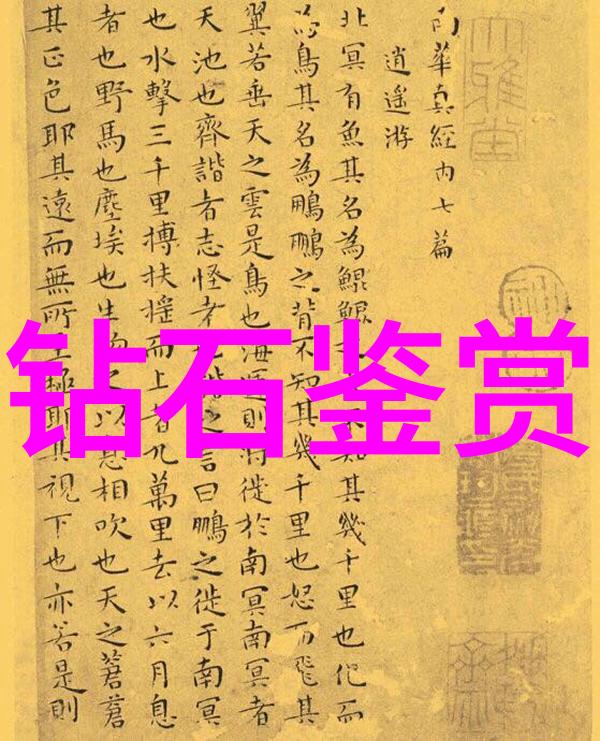 南華真經内七篇
逍遥游
北冥有魚其名為鯤鯤不知其幾千里也化而
為鳥其名為鵬鵬之背不知其幾千里也怒而飛其
翼若垂天之雲是鳥也海運則将徙於南冥南冥者
天池也齊諧者志怪者也諧之言曰鵬之徙于南冥
也水擊三千里摶扶揺而上者九萬里去以六月息
者也野馬也塵埃也生物之以息相吹也天之蒼蒼
其正色耶其遠而無所至極耶其視下也亦若是則
大雅堂
钻石鉴赏